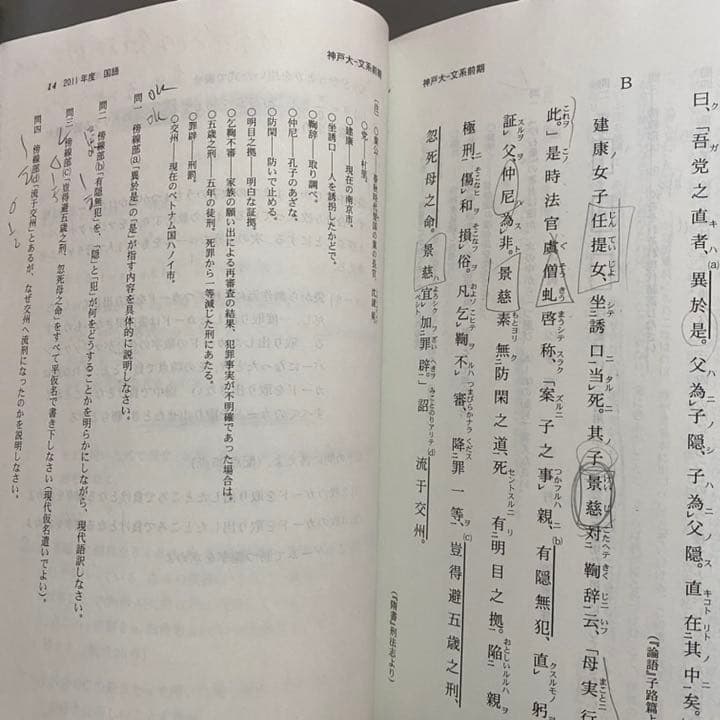 神戸大-文系前期
曰、「吾党之直者、異於是。父為子隠、子為父隠。直在其中矣。
(『論語』子路篇
B
建康女子任提女、坐誘口当死。其子景慈対鞫辞云、「母実行
此。」是時法官虞僧虬啓称、「案子之事親、有隠無犯、直躬
証父、仲尼為非。景慈素無防閑之道、死有明目之拠。陥親
極刑、傷和損俗。凡乞鞫不審、降罪一等、豈得避五歳之刑、
忽死母之命。景慈宜加罪辟。」詔流于交州。
(『隋書』刑法志より)
神戸大-文系前期
(注)
○党 村里。
○建康 現在の南京市。
○坐誘口――人を誘拐したかどで。
○鞫辞 取り調べ。
○仲尼――孔子のあざな。
○防閑 防いで止める。
○明目之拠 明白な証拠。
○乞鞫不審 家族の願い出による再審査の結果、犯罪事実が不明確であった場合は。
○五歳之刑 五年の徒刑。死罪から一等減じた刑にあたる。
○罪辟 刑罰。
○交州 現在のベトナム国ハノイ市。
問一 傍線部(a)「異於是」の「是」が指す内容を具体的に説明しなさい。
問二 傍線部(b)「有隠無犯」を、「隠」と「犯」が何をどうすることかを明らかにしながら、現代語訳しなさい。
問三 傍線部(c)「豈得避五歳之刑、忽死母之命」をすべて平仮名で書き下しなさい(現代仮名遣いでよい)。
問四 傍線部(d)「流于交州」とあるが、なぜ交州へ流刑になったのかを説明しなさい。
14 2011年度 国語